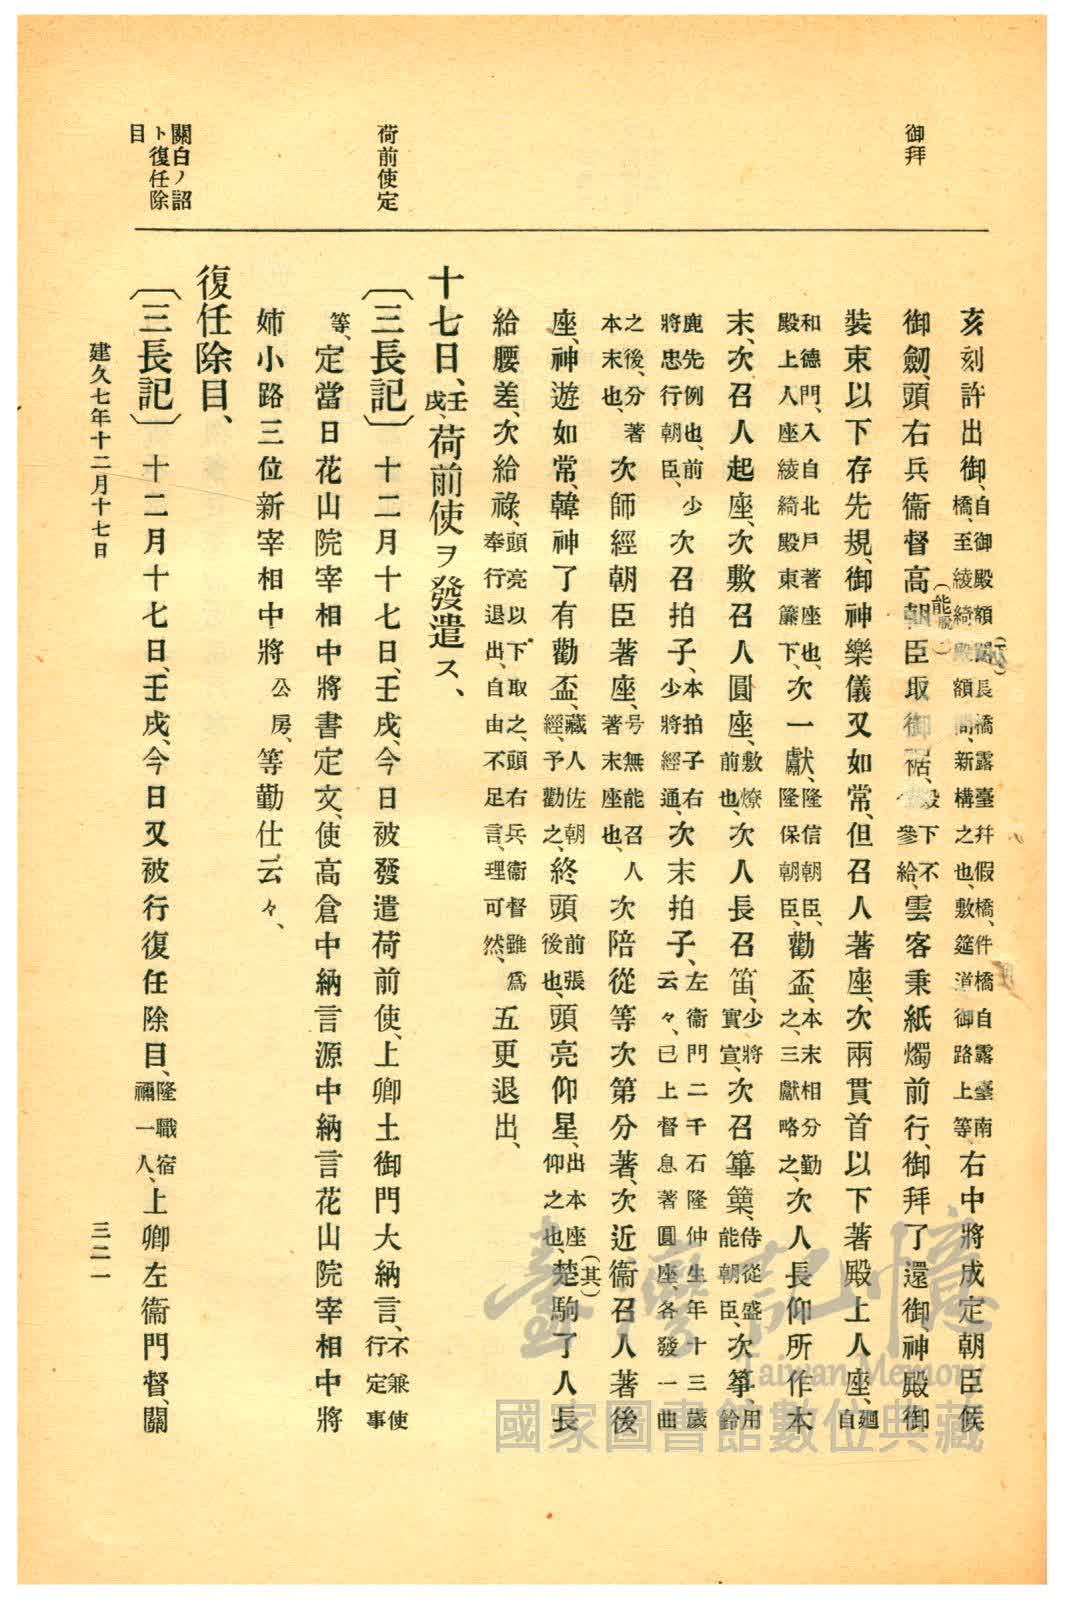 御拜
荷前使定
關白ノ詔
ト復任除
目
亥刻許出御、自御殿額間長橋露臺幷假橋、件橋自露臺南橋、至綾綺殿額間、新構之也、敷筵道御路上等、右中將成定朝臣候
御劒、頭右兵衞督高朝臣取御裾、殿下不參給、雲客秉紙燭前行、御拜了還御、神殿御
(能脫)
裝束以下存先規、御神樂儀又如常、但召人著座、次兩貫首以下著殿上人座、廻自
和德門、入自北戶著座也、殿上人座綾綺殿東簾下、次一獻、隆信朝臣、隆保朝臣、勸盃、本末相分勤之、三獻略之、次人長仰所作本
末、次召人起座、次敷召人圓座、敷燎前也、次人長召笛、少將實宣、次召篳篥、侍從盛能朝臣、次箏、用鈴
鹿先例也、前少將忠行朝臣、次召拍子、本拍子右少將經通、次末拍子、左衞門二千石隆仲生年十三歲云々、已上督息著圓座、各發一曲
之後、分著本末也、次師經朝臣著座、号無能召人著末座也、次陪從等次第分著、次近衞召人著後
座、神遊如常、韓神了有勸盃、藏人佐朝經、予勸之、終頭、前張後也、頭亮仰星、出本座仰之也、楚駒了人長
(其)
給腰差、次給祿、頭亮以下取之、頭右兵衞督雖爲奉行退出、自由不足言、理可然、五更退出、
十七日、壬戌、荷前使ヲ發遣ス、
〔三長記〕十二月十七日、壬戌、今日被發遣荷前使、上卿土御門大納言、不兼使行定事
等、定當日花山院宰相中將書定文、使高倉中納言源中納言花山院宰相中將
姉小路三位新宰相中將公房、等勤仕云々、
復任除目、
〔三長記〕十二月十七日、壬戌、今日又被行復任除目、隆職宿禰一人、上卿左衞門督、關
建久七年十二月十七日
三二一
臺灣記憶
Taiwan Memory
國家圖書館數位典藏